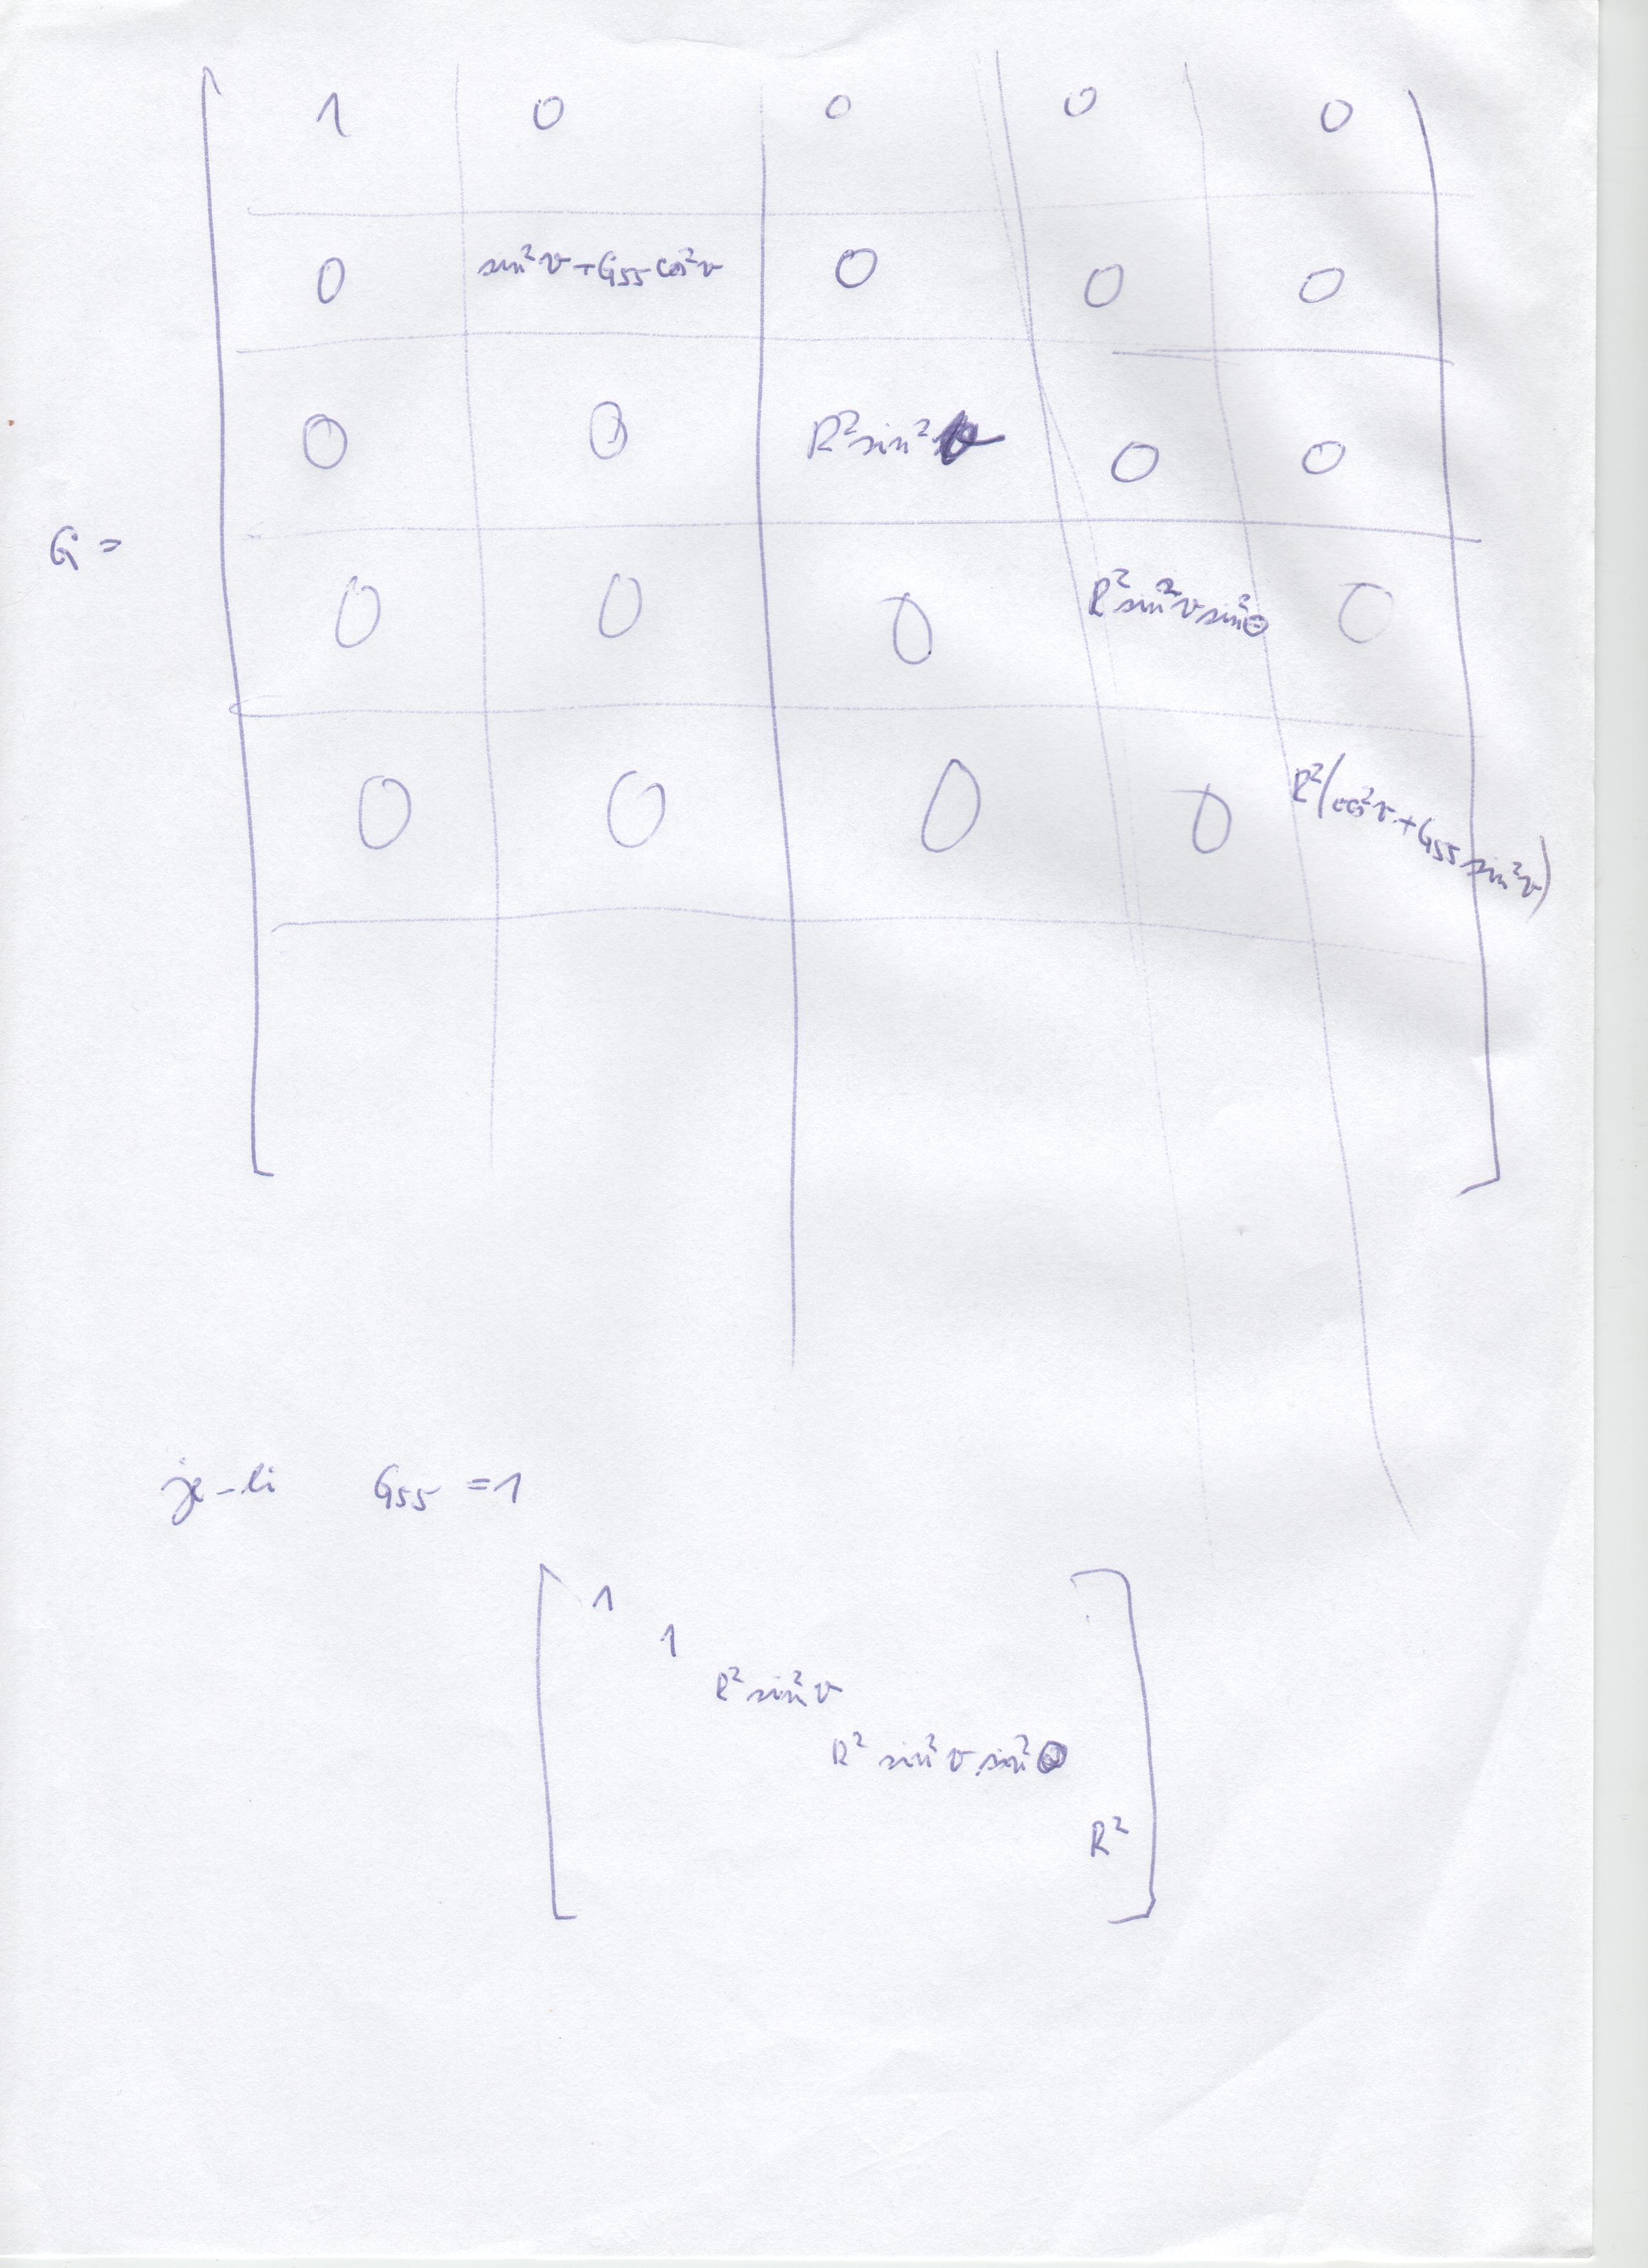 1 0 0 0 0
0 sin²v+G₅₅cos²v 0 0 0
0 0 R²sin² 0 0
G =
0 0 0 R²sin²v sin²θ 0
0 0 0 0 R²(cos²v+G₅₅ sin²v)
je-li G₅₅ = 1
1
1
R² sin²v
R² sin²v sin²θ
R²